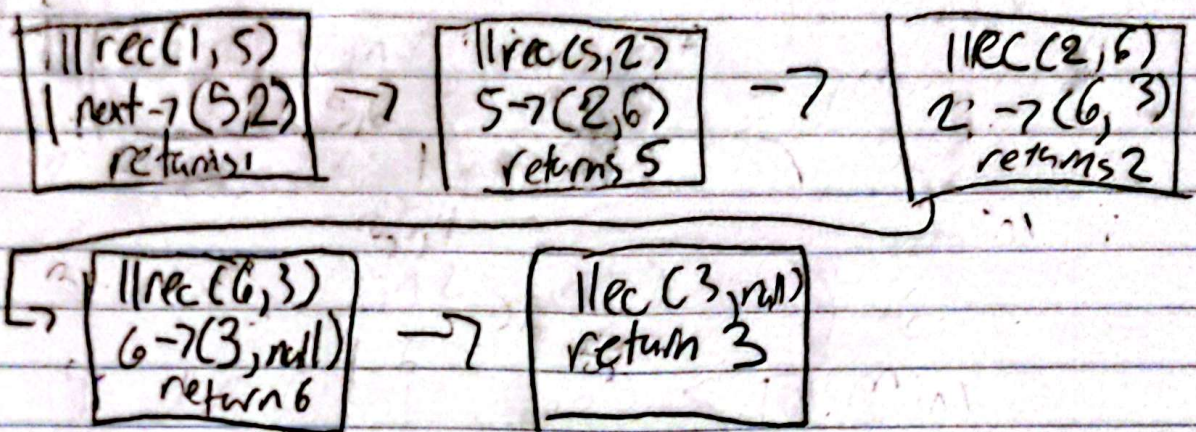 llrec(1,5)
1 next→(5,2)
returns 1
→
llrec(5,2)
5→(2,6)
returns 5
→
llrec(2,6)
2 →(6, 3)
returns 2
llrec(6,3)
6→(3,null)
return 6
→
llec(3,null)
return 3